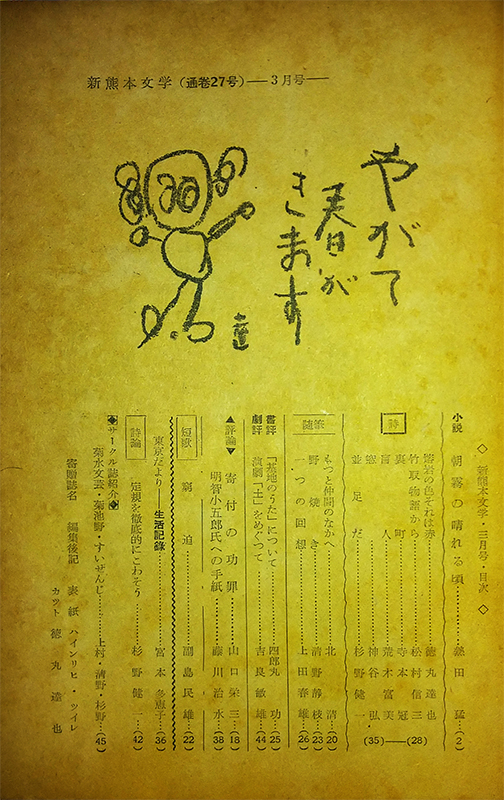 新熊本文学(通巻27号)―3月号―
やがて
春が
きます
達
◇ 新熊本文学・三月号・目次 ◇
小説 朝霧の晴れる頃 田 猛 (2)
詩
熔岩の色それは赤 徳丸達也
竹取物語から 松村信三
裏町 寺本冠
盲人 荒木富美
窓 神谷弘
並足だ 杉野健一
(35)――(28)
随筆
もつと仲間のなかへ 北 清 (20)
野焼き 清野静枝 (23)
一つの回想 上田春雄 (26)
書評 「基地のうた」について 四郎丸 功 (25)
劇評 演劇「土」をめぐつて 吉良敏雄 (44)
▲評論▼ 寄付の功罪 山口栄三 (18)
明智小五郎氏への手紙 藤川治水 (38)
短歌 窮迫 副島民雄 (22)
東京だより――生活記録 宮本多恵子 (36)
詩論 定規を徹底的にこわそう 杉野健一 (42)
◆サークル誌紹介◆
菊水文芸・菊池野・すいぜんじ 上村・清野・杉野 (45)
寄贈誌名 編集後記 表紙 ハインリヒ・ツイレ
カツト 徳丸達也